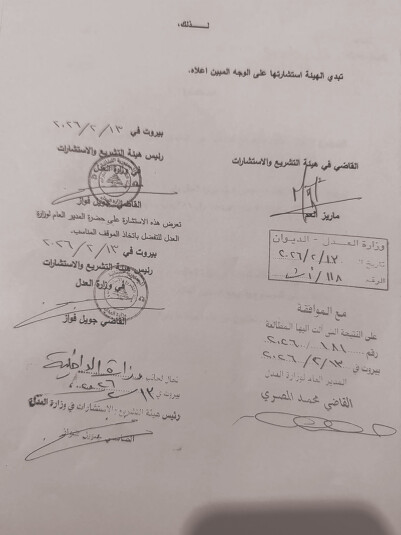 لـــــذلك،
تبدي الهيئة استشارتها على الوجه المبين اعلاه.
القاضي في هيئة التشريع والاستشارات
ماريز العم
وزارة العـــدل - الديـوان
تاريخ ٢٠٢٦/٢/١٣
الرقم ١١٨
مع الموافقة
على النتيجة التي آلت اليها المطالعة
رقم ١٨١ / ٢٠٢٦
بيروت في ٢٠٢٦/٢/١٣
المدير العام لوزارة العدل
القاضي محمد المصري
بيروت في ٢٠٢٦/٢/١٣
رئيس هيئة التشريع والاستشارات
في وزارة العدل
القاضي جويل فواز
تعرض هذه الاستشارة على حضرة المدير العام لوزارة
العدل للتفضل باتخاذ الموقف المناسب.
بيروت في ٢٠٢٦/٢/١٣
رئيس هيئة التشريع والاستشارات
في وزارة العدل
القاضي جويل فواز
تحال لجانب وزارة الداخلية
بيروت في ١٣
رئيس هيئة التشريع والاستشارات في وزارة العدل
القاضي جويل فواز